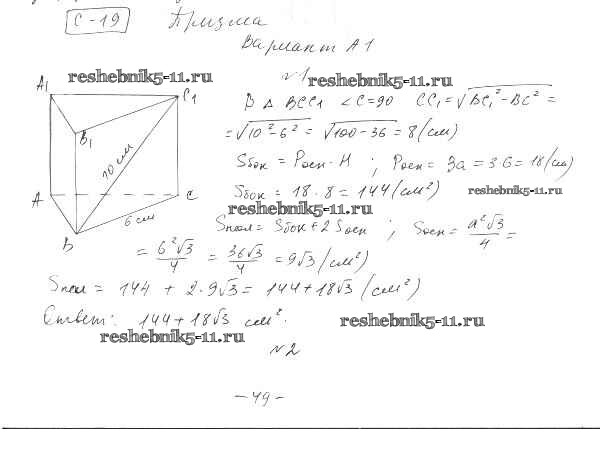 С-19 Призма
Вариант А1
reshebnik5-11.ru
№1
reshebnik5-11.ru
A₁ C₁
B₁
10 см
A C
6 см
B
В Δ BCC₁ ∠C=90 CC₁=√(BC₁²-BC²)=
=√(10²-6²)=√(100-36)=8(см)
Sбок = Pосн·H ; Pосн = 3a = 3·6 = 18(см)
Sбок = 18·8=144(см²)
reshebnik5-11.ru
reshebnik5-11.ru
Sпол = Sбок+2Sосн ; Sосн = a²√3/4 =
= 6²√3/4 = 36√3/4 = 9√3(см²)
Sпол = 144 + 2·9√3 = 144+18√3(см²)
Ответ: 144+18√3 см².
reshebnik5-11.ru
reshebnik5-11.ru
№2
-49-